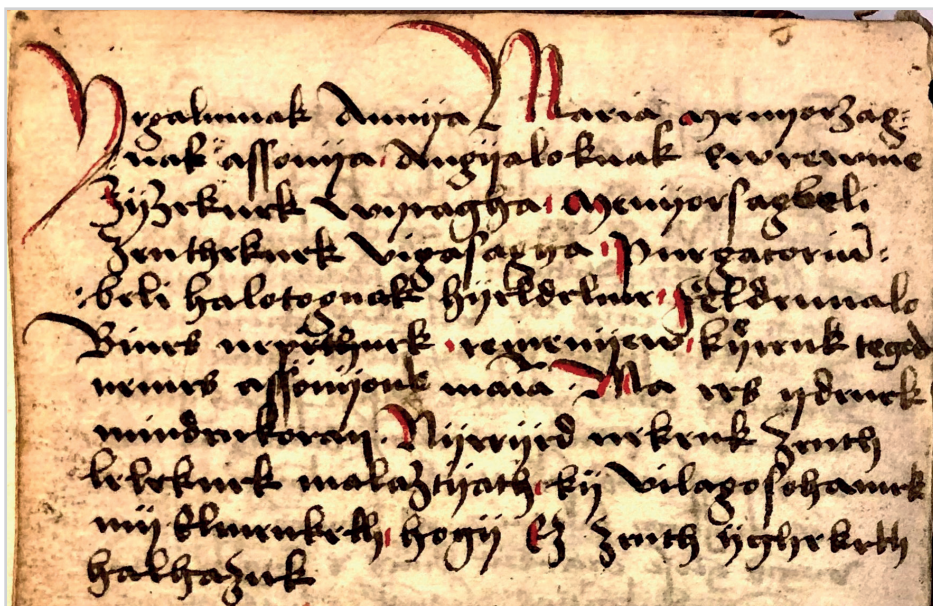 Yrgalumnak Annya Maria menyorzag-
nak assonya Angyaloknak ewrewme
zyzeknek wyragha menyorsagbeli
zentheknek vigasagya purgatoriū-
beli halotognak hyeldelme feldennalo
Bines nepethnek remenyew kyrenk teged
nemes assonyonk maria Ma ees ydenek
mindenkoran Nyerryed nekenk zenth
leleknek malaztyath ky vilagosohamek
my elmenketh hogy Ez zenth ygheketh
halhazuk